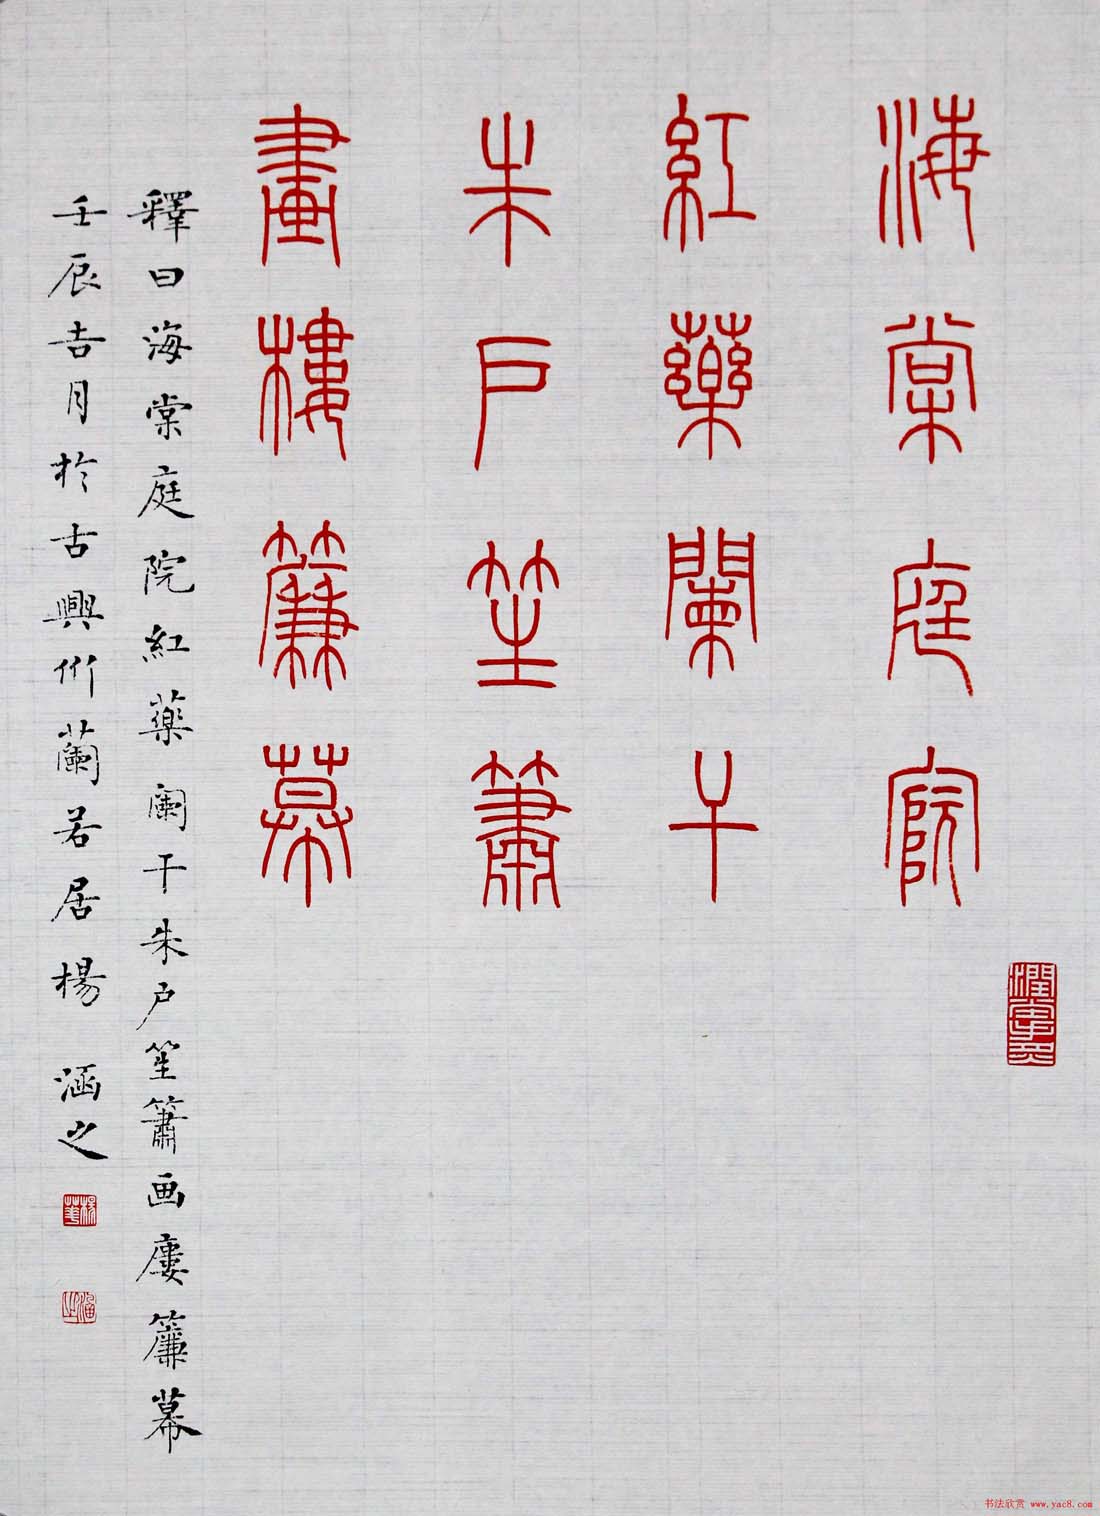 海棠庭院
紅藥闌干
朱戶笙簫
畫樓簾幕
釋曰海棠庭院紅藥闌干朱户笙簫画廔簾幕
壬辰吉月於古興州蘭若居楊涵之
书法欣赏 www.yac8.com